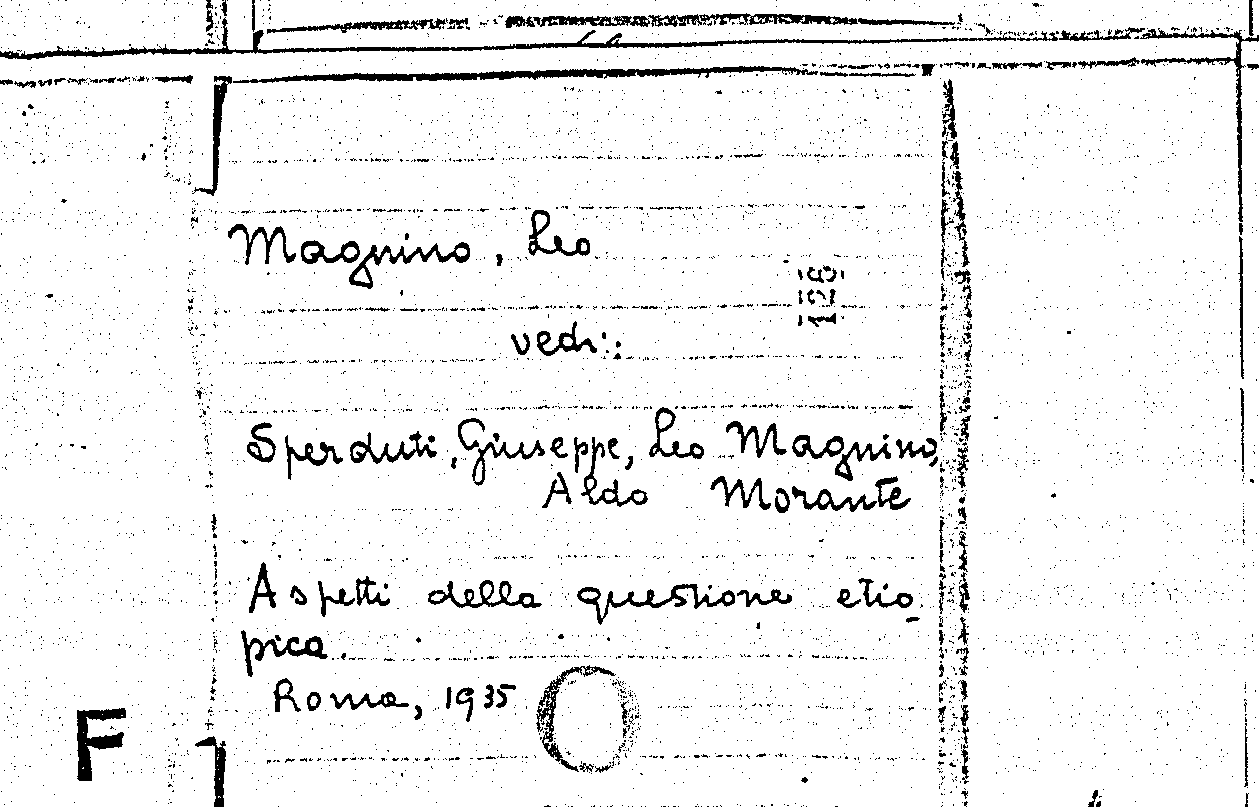 Magnino, Leo
128
vedi:
Sperduti, Giuseppe, Leo Magnino,
Aldo Morante
Aspetti della questione etio-
pica.
Roma, 1935
F